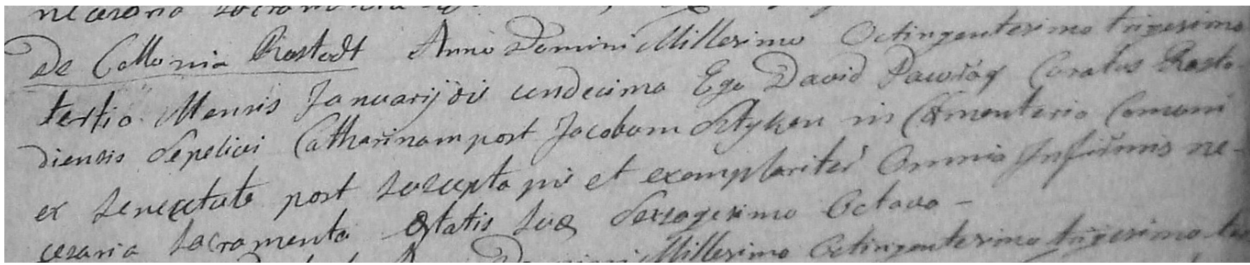 De Collonia Rastadt Anno Domini Millesimo Octingentesimo trigesimo
tertio Mensis Januarij die undecima Ego David Pawlaq Curatus Rasta
diensis Sepelivi Catharinam post Jacobum in Cæmenterio Comuni
ex Senectute post suscepta pie et exemplariter Omnia Infirmis ne-
cesaria Sacramenta Ætatis Suæ Sexagesimo Octavo -
Domini Millesimo Octingentesimo trigesimo